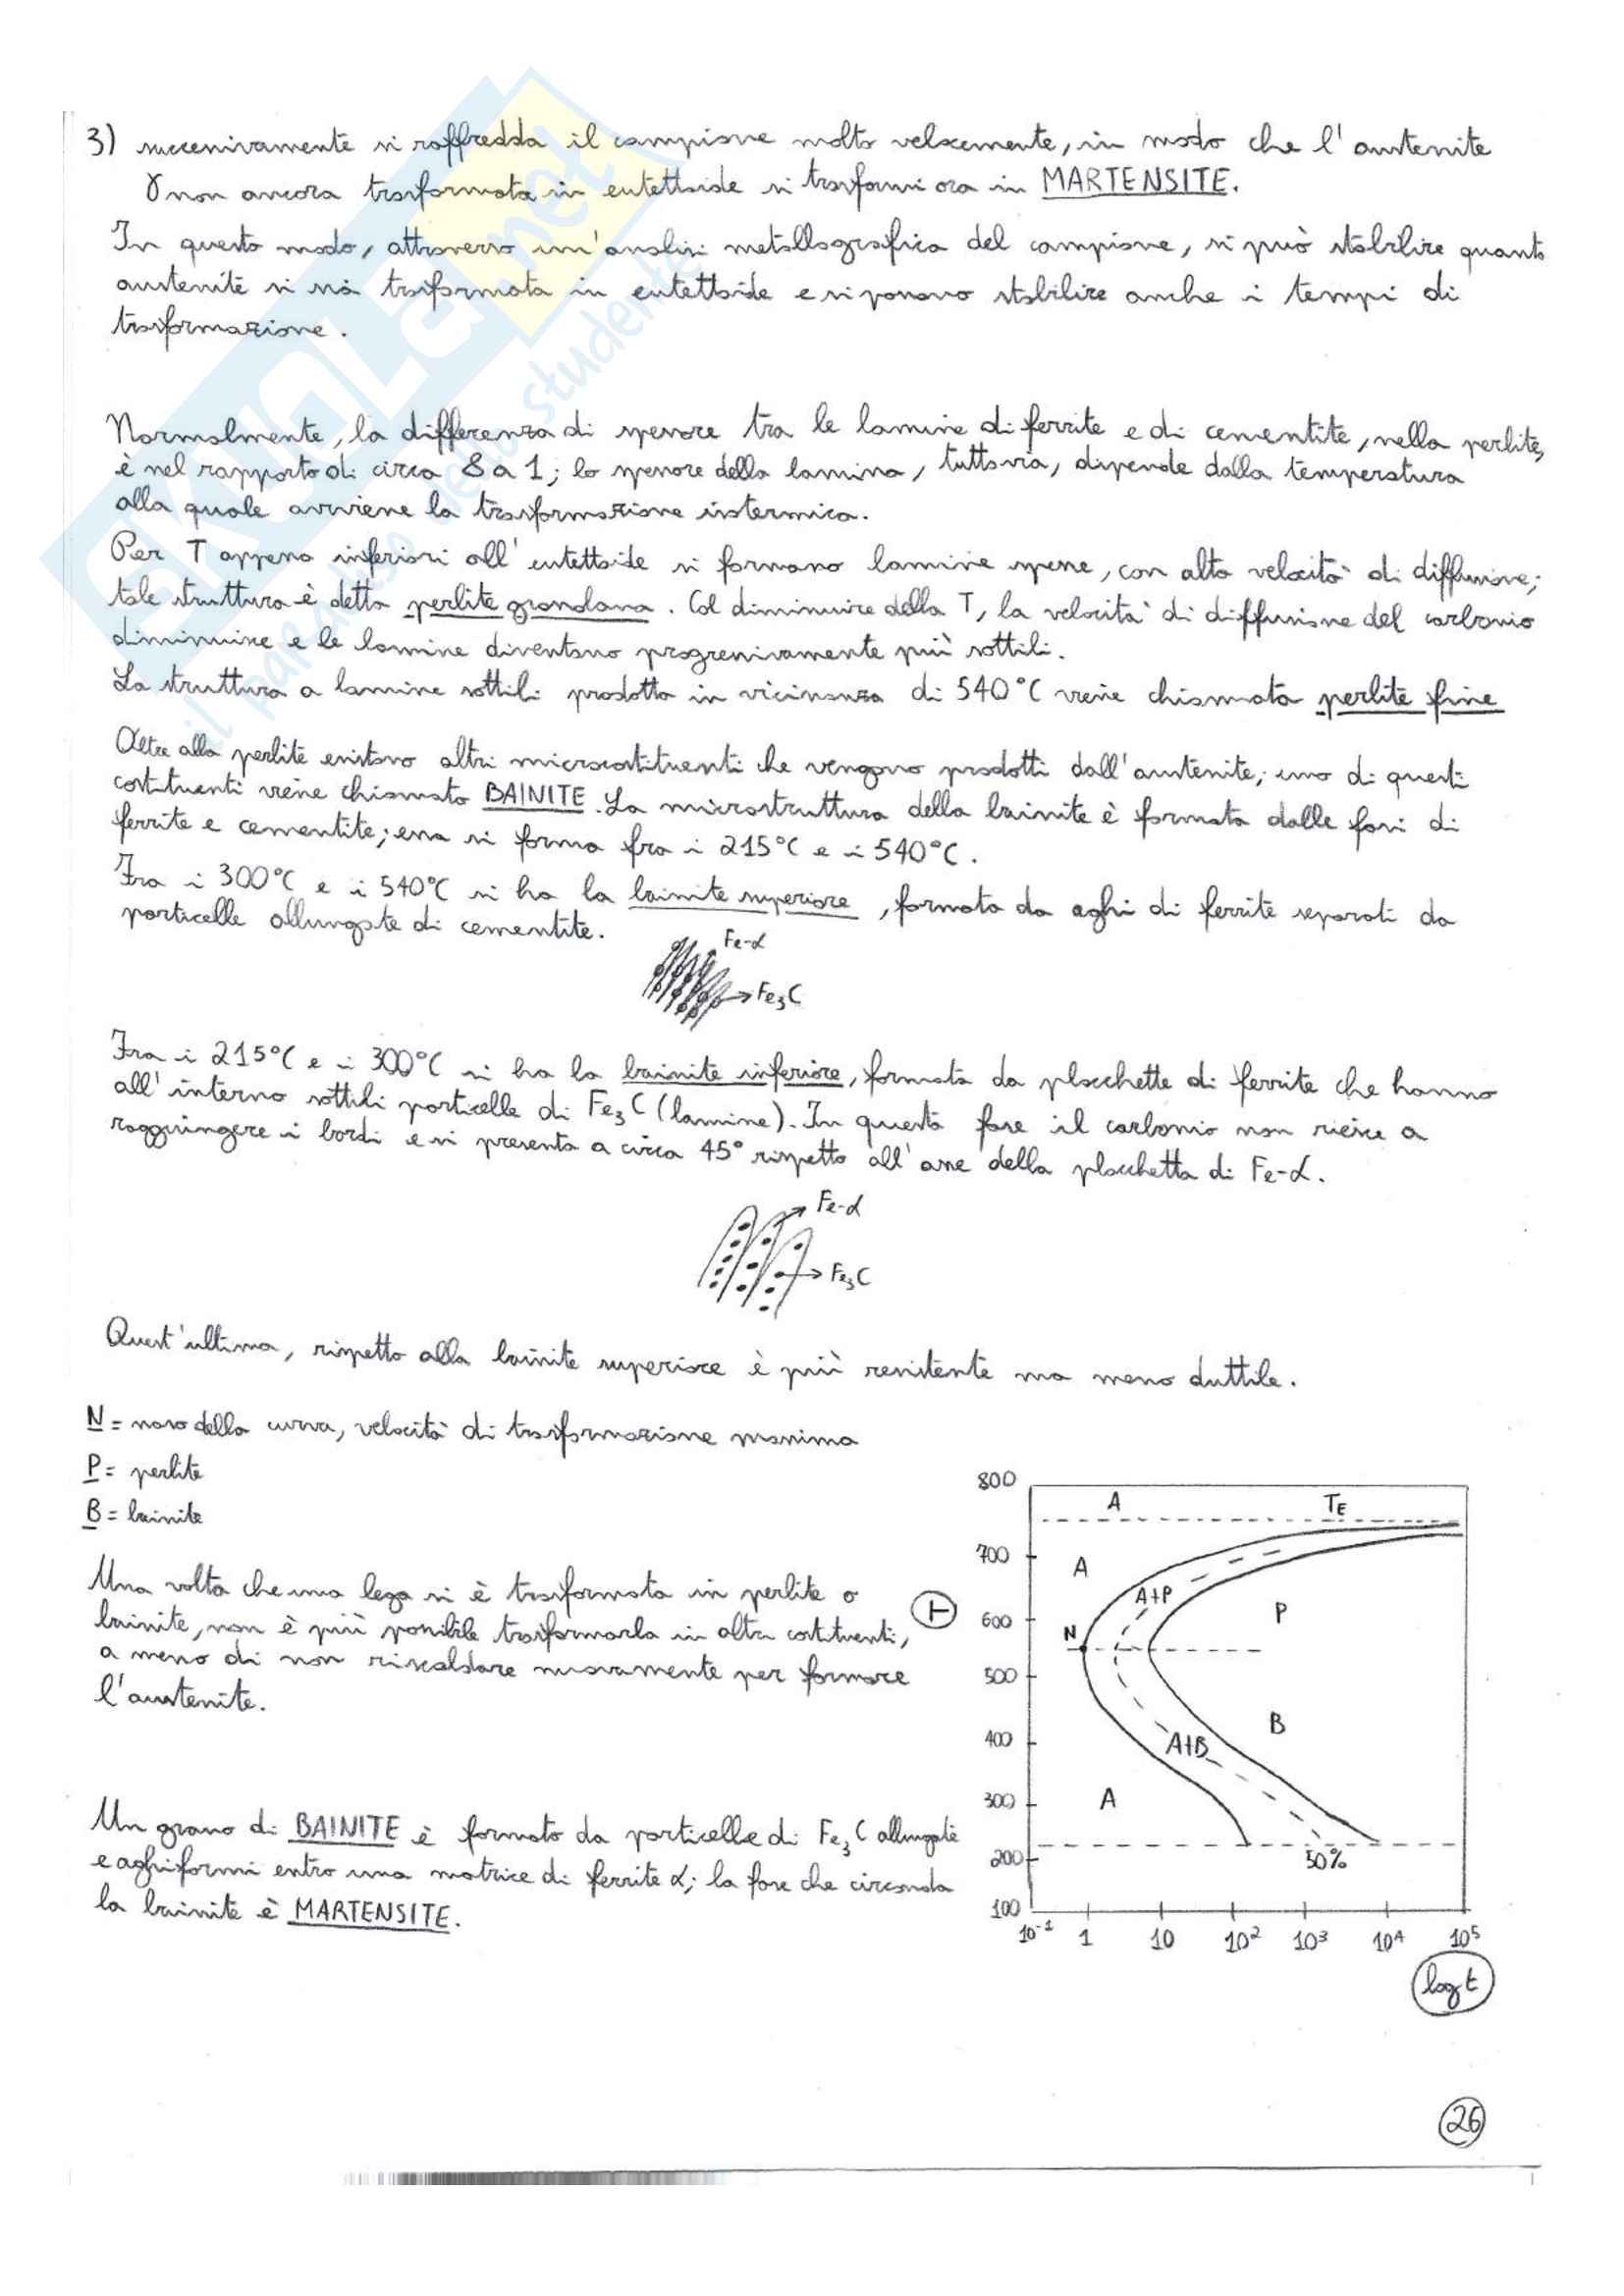 3) successivamente si raffredda il campione molto velocemente, in modo che l'austenite
γ non ancora trasformata in eutettoide si trasformi ora in MARTENSITE.
In questo modo, attraverso un'analisi metallografica del campione, si può stabilire quanta
austenite si sia trasformata in eutettoide e si possono stabilire anche i tempi di
trasformazione.
Normalmente, la differenza di spessore tra le lamine di ferrite e di cementite, nella perlite,
è nel rapporto di circa 8 a 1; lo spessore della lamina, tuttavia, dipende dalla temperatura
alla quale avviene la trasformazione isotermica.
Per T appena inferiori all'eutettoide si formano lamine spesse, con alta velocità di diffusione;
tale struttura è detta perlite grossolana. Col diminuire della T, la velocità di diffusione del carbonio
diminuisce e le lamine diventano progressivamente più sottili.
La struttura a lamine sottili prodotta in vicinanza di 540°C viene chiamata perlite fine
Oltre alla perlite esistono altri microcostituenti che vengono prodotti dall'austenite; uno di questi
costituenti viene chiamato BAINITE. La microstruttura della bainite è formata dalle fasi di
ferrite e cementite; essa si forma fra i 215°C e i 540°C.
Fra i 300°C e i 540°C si ha la bainite superiore, formata da aghi di ferrite separati da
particelle allungate di cementite.
Fe-α
Fe3C
Fra i 215°C e i 300°C si ha la bainite inferiore, formata da placchette di ferrite che hanno
all'interno sottili particelle di Fe3C (lamine). In questa fase il carbonio non riesce a
raggiungere i bordi e si presenta a circa 45° rispetto all'asse della placchetta di Fe-α.
Fe-α
Fe3C
Quest'ultima, rispetto alla bainite superiore è più resistente ma meno duttile.
N = naso della curva, velocità di trasformazione massima
P = perlite
B = bainite
Una volta che una lega si è trasformata in perlite o
bainite, non è più possibile trasformarla in altri costituenti,
a meno di non riscaldare nuovamente per formare
l'austenite.
Un grano di BAINITE è formato da particelle di Fe3C allungate
e aghiformi entro una matrice di ferrite α; la fase che circonda
la bainite è MARTENSITE.
800
A TE
700
A
A+P
T 600 P
N
500
B
400
A+B
300 A
200
50%
100
10-1 1 10 10² 10³ 10⁴ 10⁵
log t
26
SKUOLA.net
il paradiso dello studente